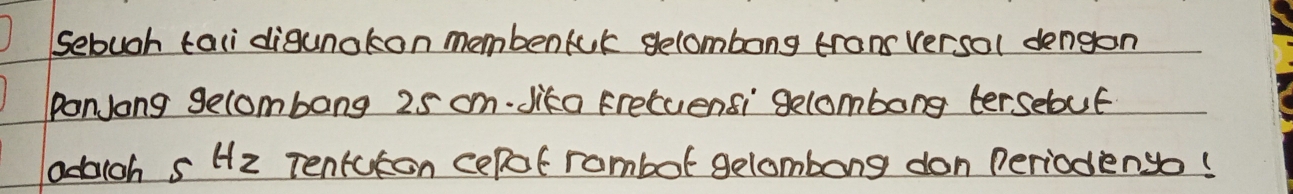 Sebuah tali digunakan membentuk gelombang transversal dengan
Panjang gelombang 25 cm. Jika Frekuensi gelombang tersebut
adalah 5 Hz Tentukan cepat rambat gelombang dan Periodenya!